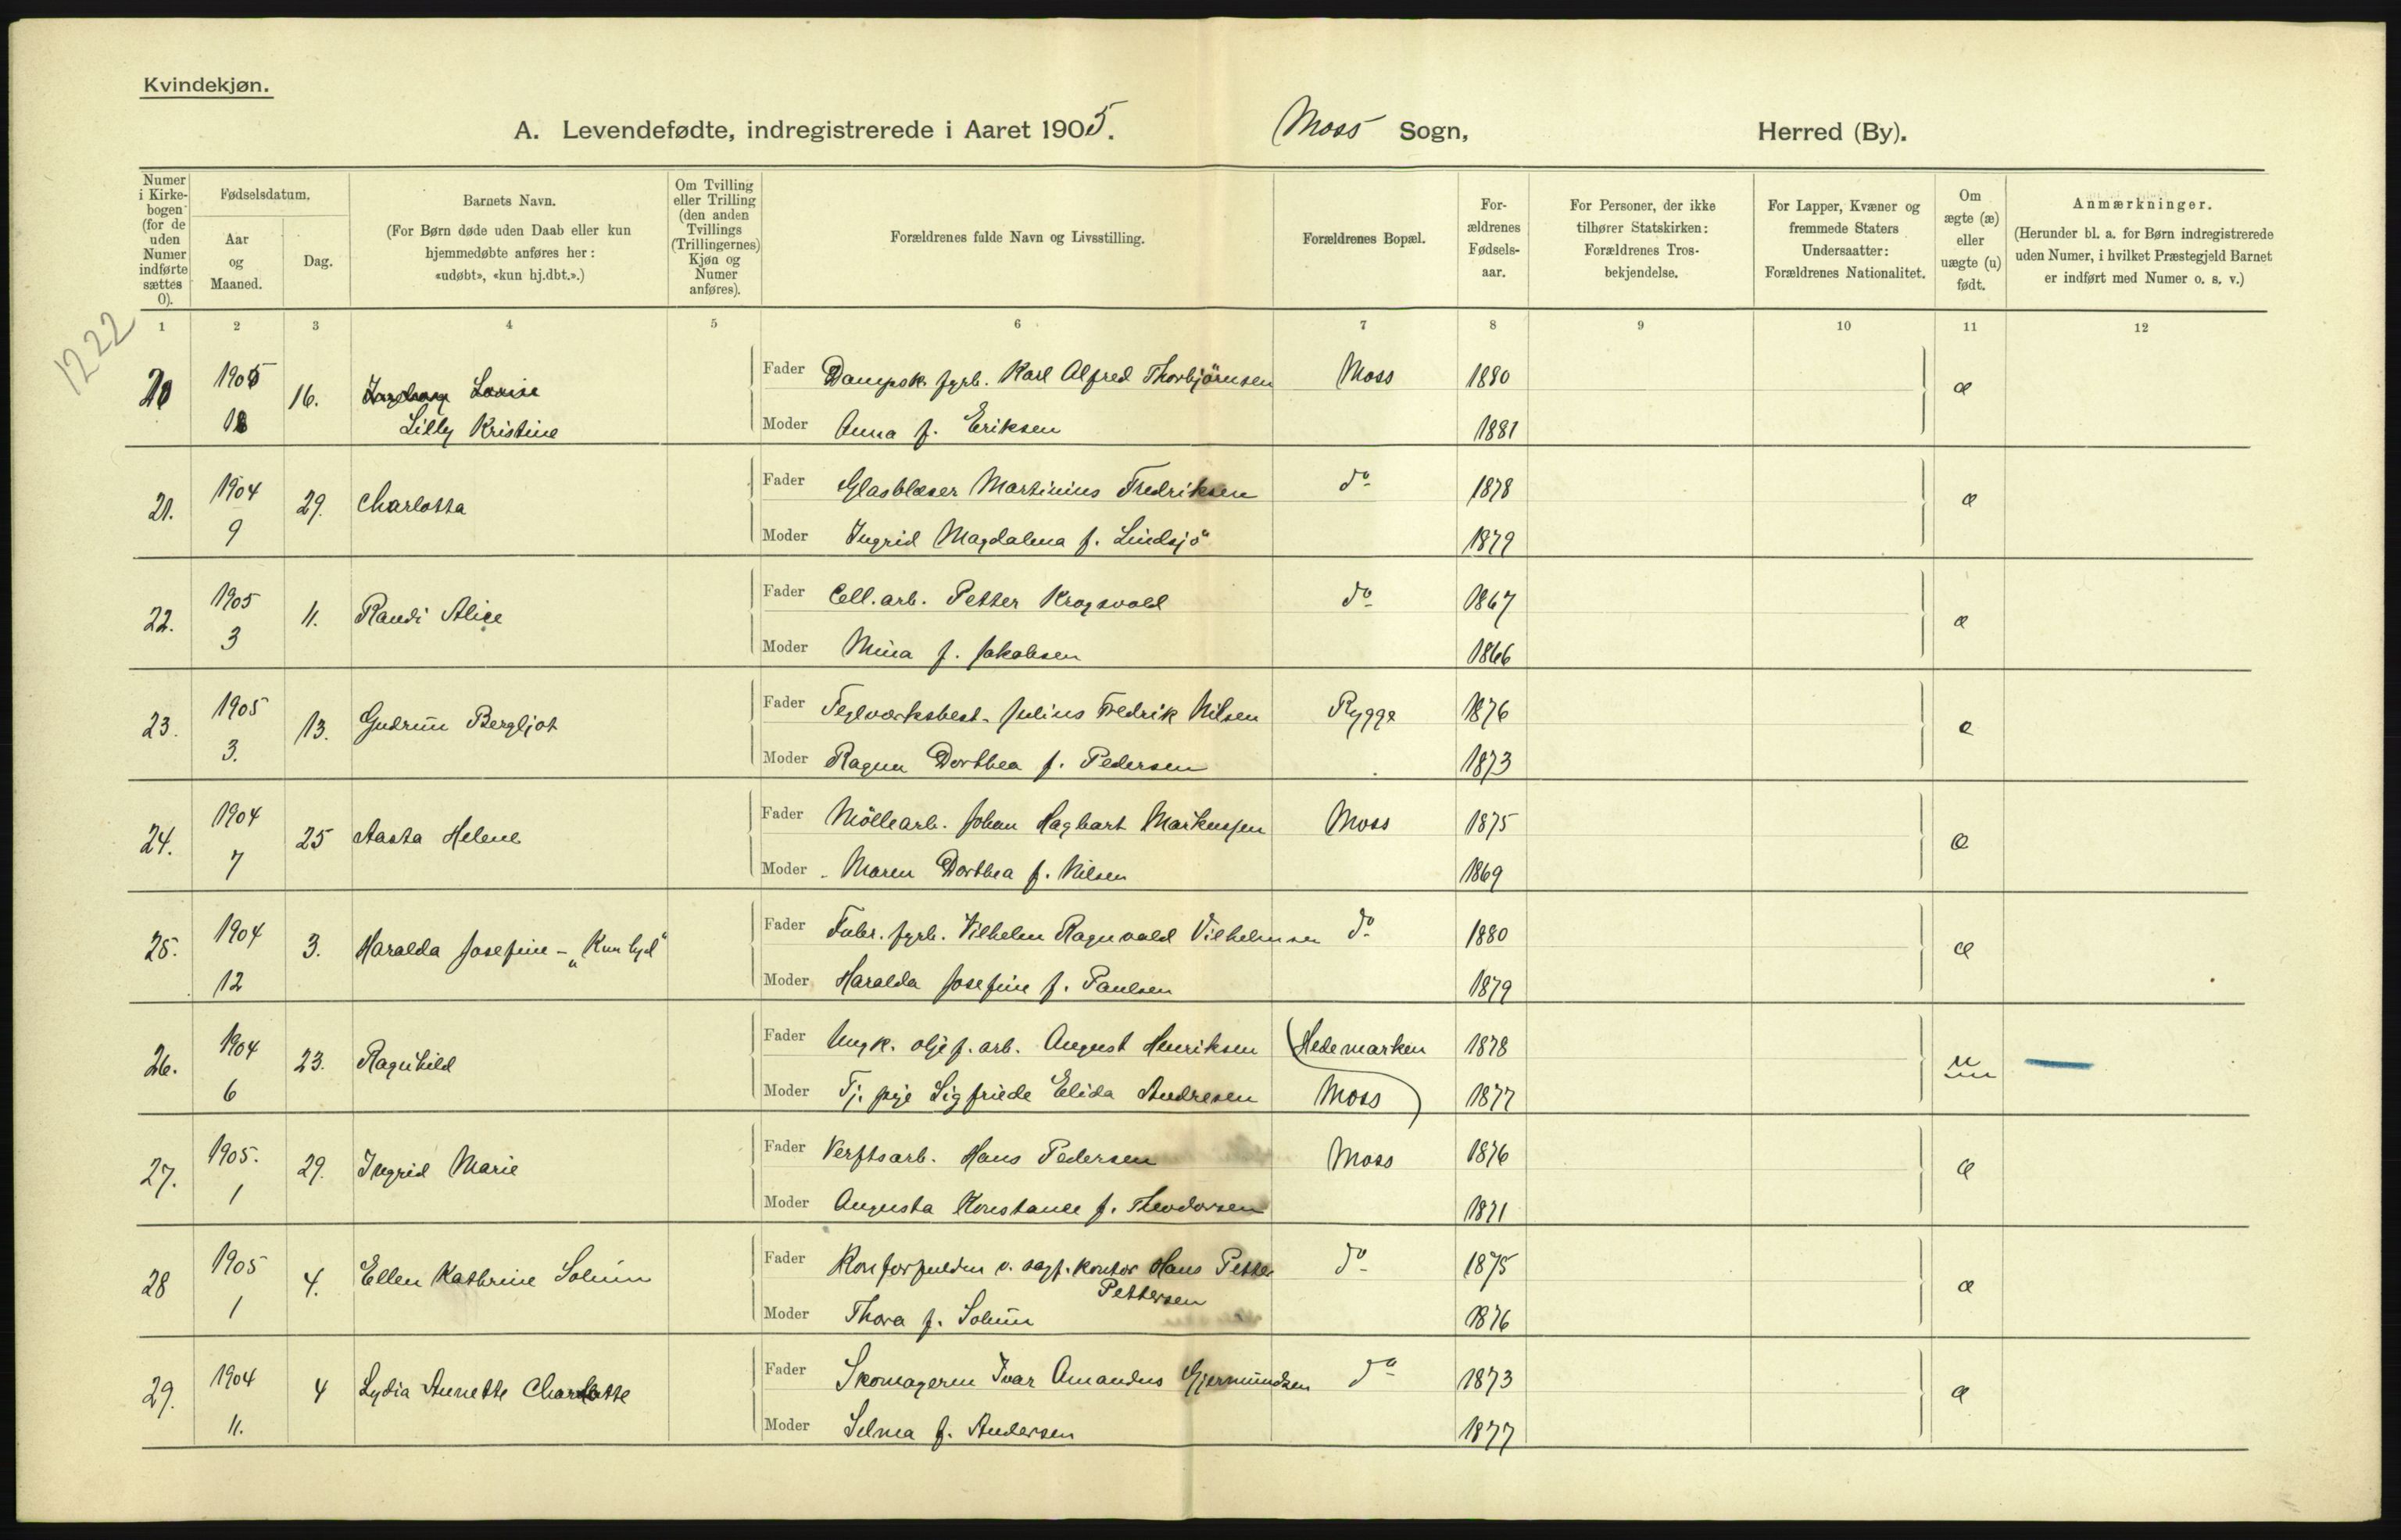 Kvindekjøn.
A. Levendefødte, indregistrerede i Aaret 1905. Moss Sogn, Herred (By).
Numer i Kirkebogen (for de uden Numer indførte sættes 0).
Fødselsdatum.
Aar og Maaned.
Dag.
Barnets Navn.
(For Børn døde uden Daab eller kun hjemmedøbte anføres her: «udøbt», «kun hj.dbt.».)
Om Tvilling eller Trilling (den anden Tvillings (Trillingernes) Kjøn og Numer anføres).
Forældrenes fulde Navn og Livsstilling.
Forældrenes Bopæl.
Forældrenes Fødselsaar.
For Personer, der ikke tilhører Statskirken: Forældrenes Trosbekjendelse.
For Lapper, Kvæner og fremmede Staters Undersaatter: Forældrenes Nationalitet.
Om ægte (æ) eller uægte (u) født.
Anmærkninger.
(Herunder bl. a. for Børn indregistrerede uden Numer, i hvilket Præstegjeld Barnet er indført med Numer o. s. v.)
1 2 3 4 5 6 7 8 9 10 11 12
1222
20 1905 16. Louise Fader Dampsk. fyrb. Karl Alfred Thorbjörnsen Moss 1880 æ
Lilly Kristine Moder Anna f. Eriksen 1881
21. 1904 29. Charlotta Fader Glasblæser Martinius Fredriksen do 1878 æ
9 Moder Ingrid Magdalena f. Lindsjö 1879
22. 1905 11. Randi Alice Fader Cell. arb. Petter Krogsvold do 1867 æ
3 Moder Mina f. Jakobsen 1866
23. 1905 13. Gudrun Bergljot Fader Teglværksbest. Julius Fredrik Nilsen Rygge 1876 æ
3. Moder Ragna Dorthea f. Pedersen 1873
24. 1904 25 Aasta Helene Fader Möllearb. Johan Hagbart Markussen Moss 1875 æ
7 Moder Maren Dorthea f. Nilsen 1869
25. 1904 3. Haralda Josefine - „Kun hjd" Fader Fabr. fyrb. Vilhelm Ragnvald Vilhelmsen do 1880 æ
12 Moder Haralda Josefine f. Paulsen 1879
26. 1904 23. Ragnhild Fader Ungk. oljef. arb. August Henriksen Hedemarken 1878 u
6 Moder Tj. pige Sigfriede Elida Andresen Moss 1877
27. 1905. 29. Ingrid Marie Fader Verftsarb. Hans Pedersen Moss 1876 æ
1 Moder Augusta Konstance f. Theodorsen 1871
28 1905 4. Ellen Kathrine Solum Fader v. sagf. kontor Hans Petter do 1875 æ
Pettersen
1 Moder Thora f. Solum 1876
29. 1904 4 Lydia Annette Charlotte Fader Skomagerm Ivar Amandus Gjermundsen do 1873 æ
11. Moder Selma f. Andersen 1877